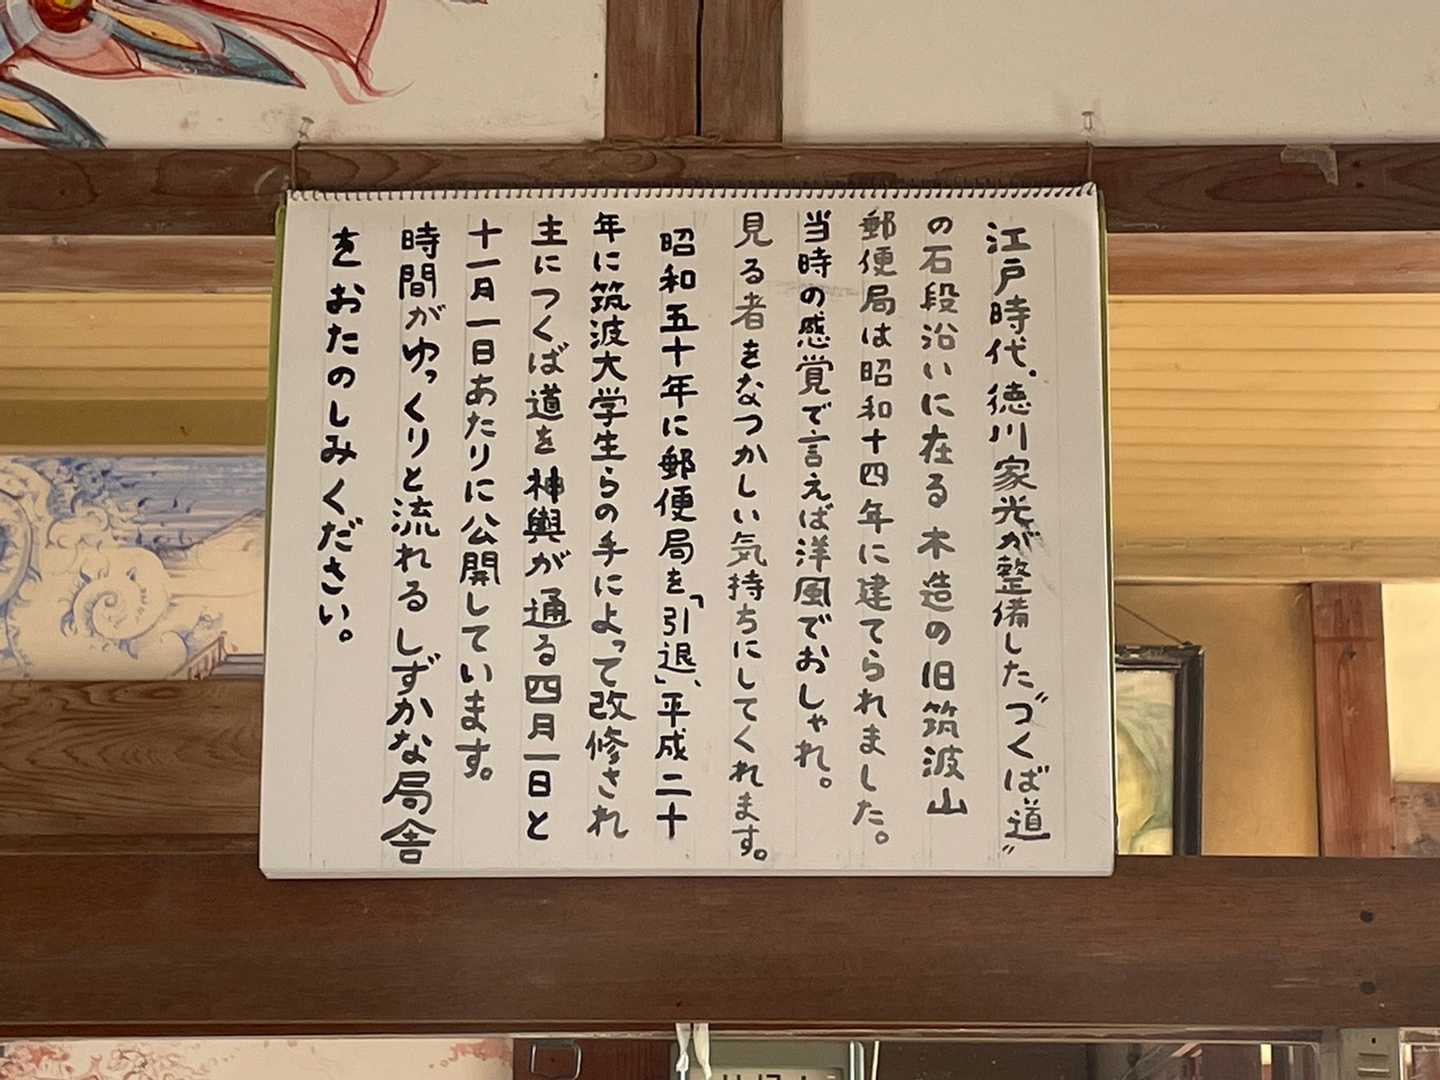 江戸時代、徳川家光が整備した"づくば道"
の石段沿いに在る木造の旧筑波山
郵便局は昭和十四年に建てられました。
当時の感覚で言えば洋風でおしゃれ。
見る者をなつかしい気持ちにしてくれます。
昭和五十年に郵便局を「引退」、平成二十
年に筑波大学生らの手によって改修され
主につくば道を神輿が通る四月一日と
十一月一日あたりに公開しています。
時間がゆっくりと流れるしずかな局舎
をおたのしみください。